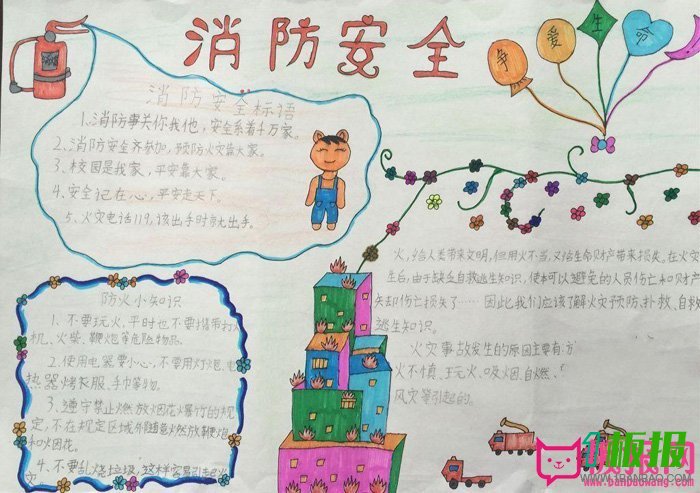 消防安全
争爱生命
消防安全标语
1、消防事关你我他，安全系着千万家。
2、消防安全齐参加，预防火灾靠大家。
3、校园是我家，平安靠大家。
4、安全记在心，平安走天下。
5、火灾电话119，该出手时就出手。
火，给人类带来文明，但用火不当，又给生命财产带来损失，在火灾
生后，由于缺乏自救逃生知识，使本可以避免的人员伤亡和财产
失却伤亡损失了……因此我们应该了解火灾预防、扑救、自救
逃生知识。
火灾事故发生的原因主要有：
火不慎、玩火、吸烟、自燃、
风灾等引起的。
防火小知识
1、不要玩火，平时也不要携带打火
机、火柴、鞭炮等危险物品。
2、使用电器要小心，不要用灯炮、电
热器烤衣服、手巾等物。
3、遵守禁止燃放烟花火爆竹的规
定，不在规定区域外随意燃放鞭炮
和烟花。
4、不要乱烧垃圾，这样容易引起火
灾。
板报
板报网
www.banbaowang.com